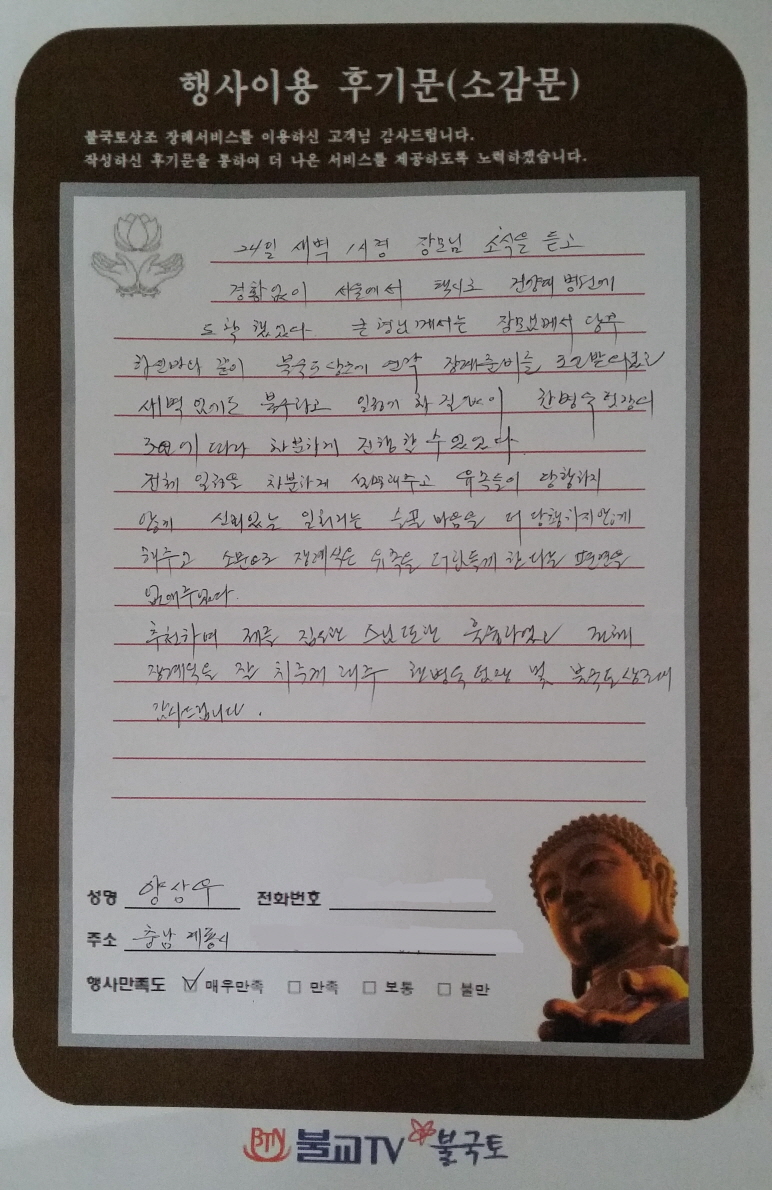 행사이용 후기문(소감문)
불국토상조 장례서비스를 이용하신 고객님 감사드립니다.
작성하신 후기문을 통하여 더 나은 서비스를 제공하도록 노력하겠습니다.
24일 새벽 1시경 장모님 소식을 듣고
경황없이 서울에서 택시로 건양대 병원에
도착했었다. 큰형님께서는 장모님께서
같이 불국토상조에 연락 장례준비를
새벽 불구하고 일하기 현병숙 팀장의
따라 차분하게 진행할 수 있었다.
전체 일정을 차분하게 설명해주고 유족들이 당황하지
않게 신뢰있는 마음을 더 당황하지않게
해주고 장례식은 유족을 더힘들게 한다는 편견을
없애주었다.
추천하며 제를 집도한 스님 또한 훌륭하였고 전체
장례식을 잘 치루게 해주 현병숙 팀장 및 불국토상조에
감사드립니다.
성명 양상우 전화번호
주소 충남 계룡시
행사만족도 ☑ 매우만족 □ 만족 □ 보통 □ 불만
BTN 불교TV 불국토